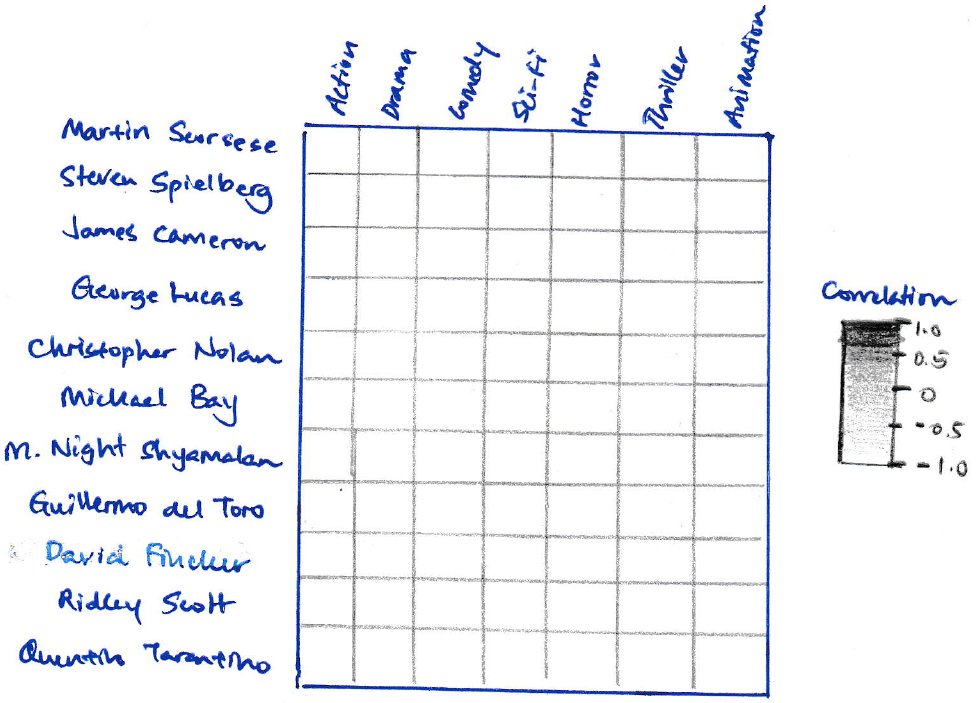 Action Drama Comedy Sci-Fi Horror Thriller Animation
Martin Scorsese
Steven Spielberg
James Cameron
George Lucas
Christopher Nolan
Michael Bay
M. Night Shyamalan
Guillermo del Toro
David Fincher
Ridley Scott
Quentin Tarantino
Correlation
1.0
0.5
0
-0.5
-1.0